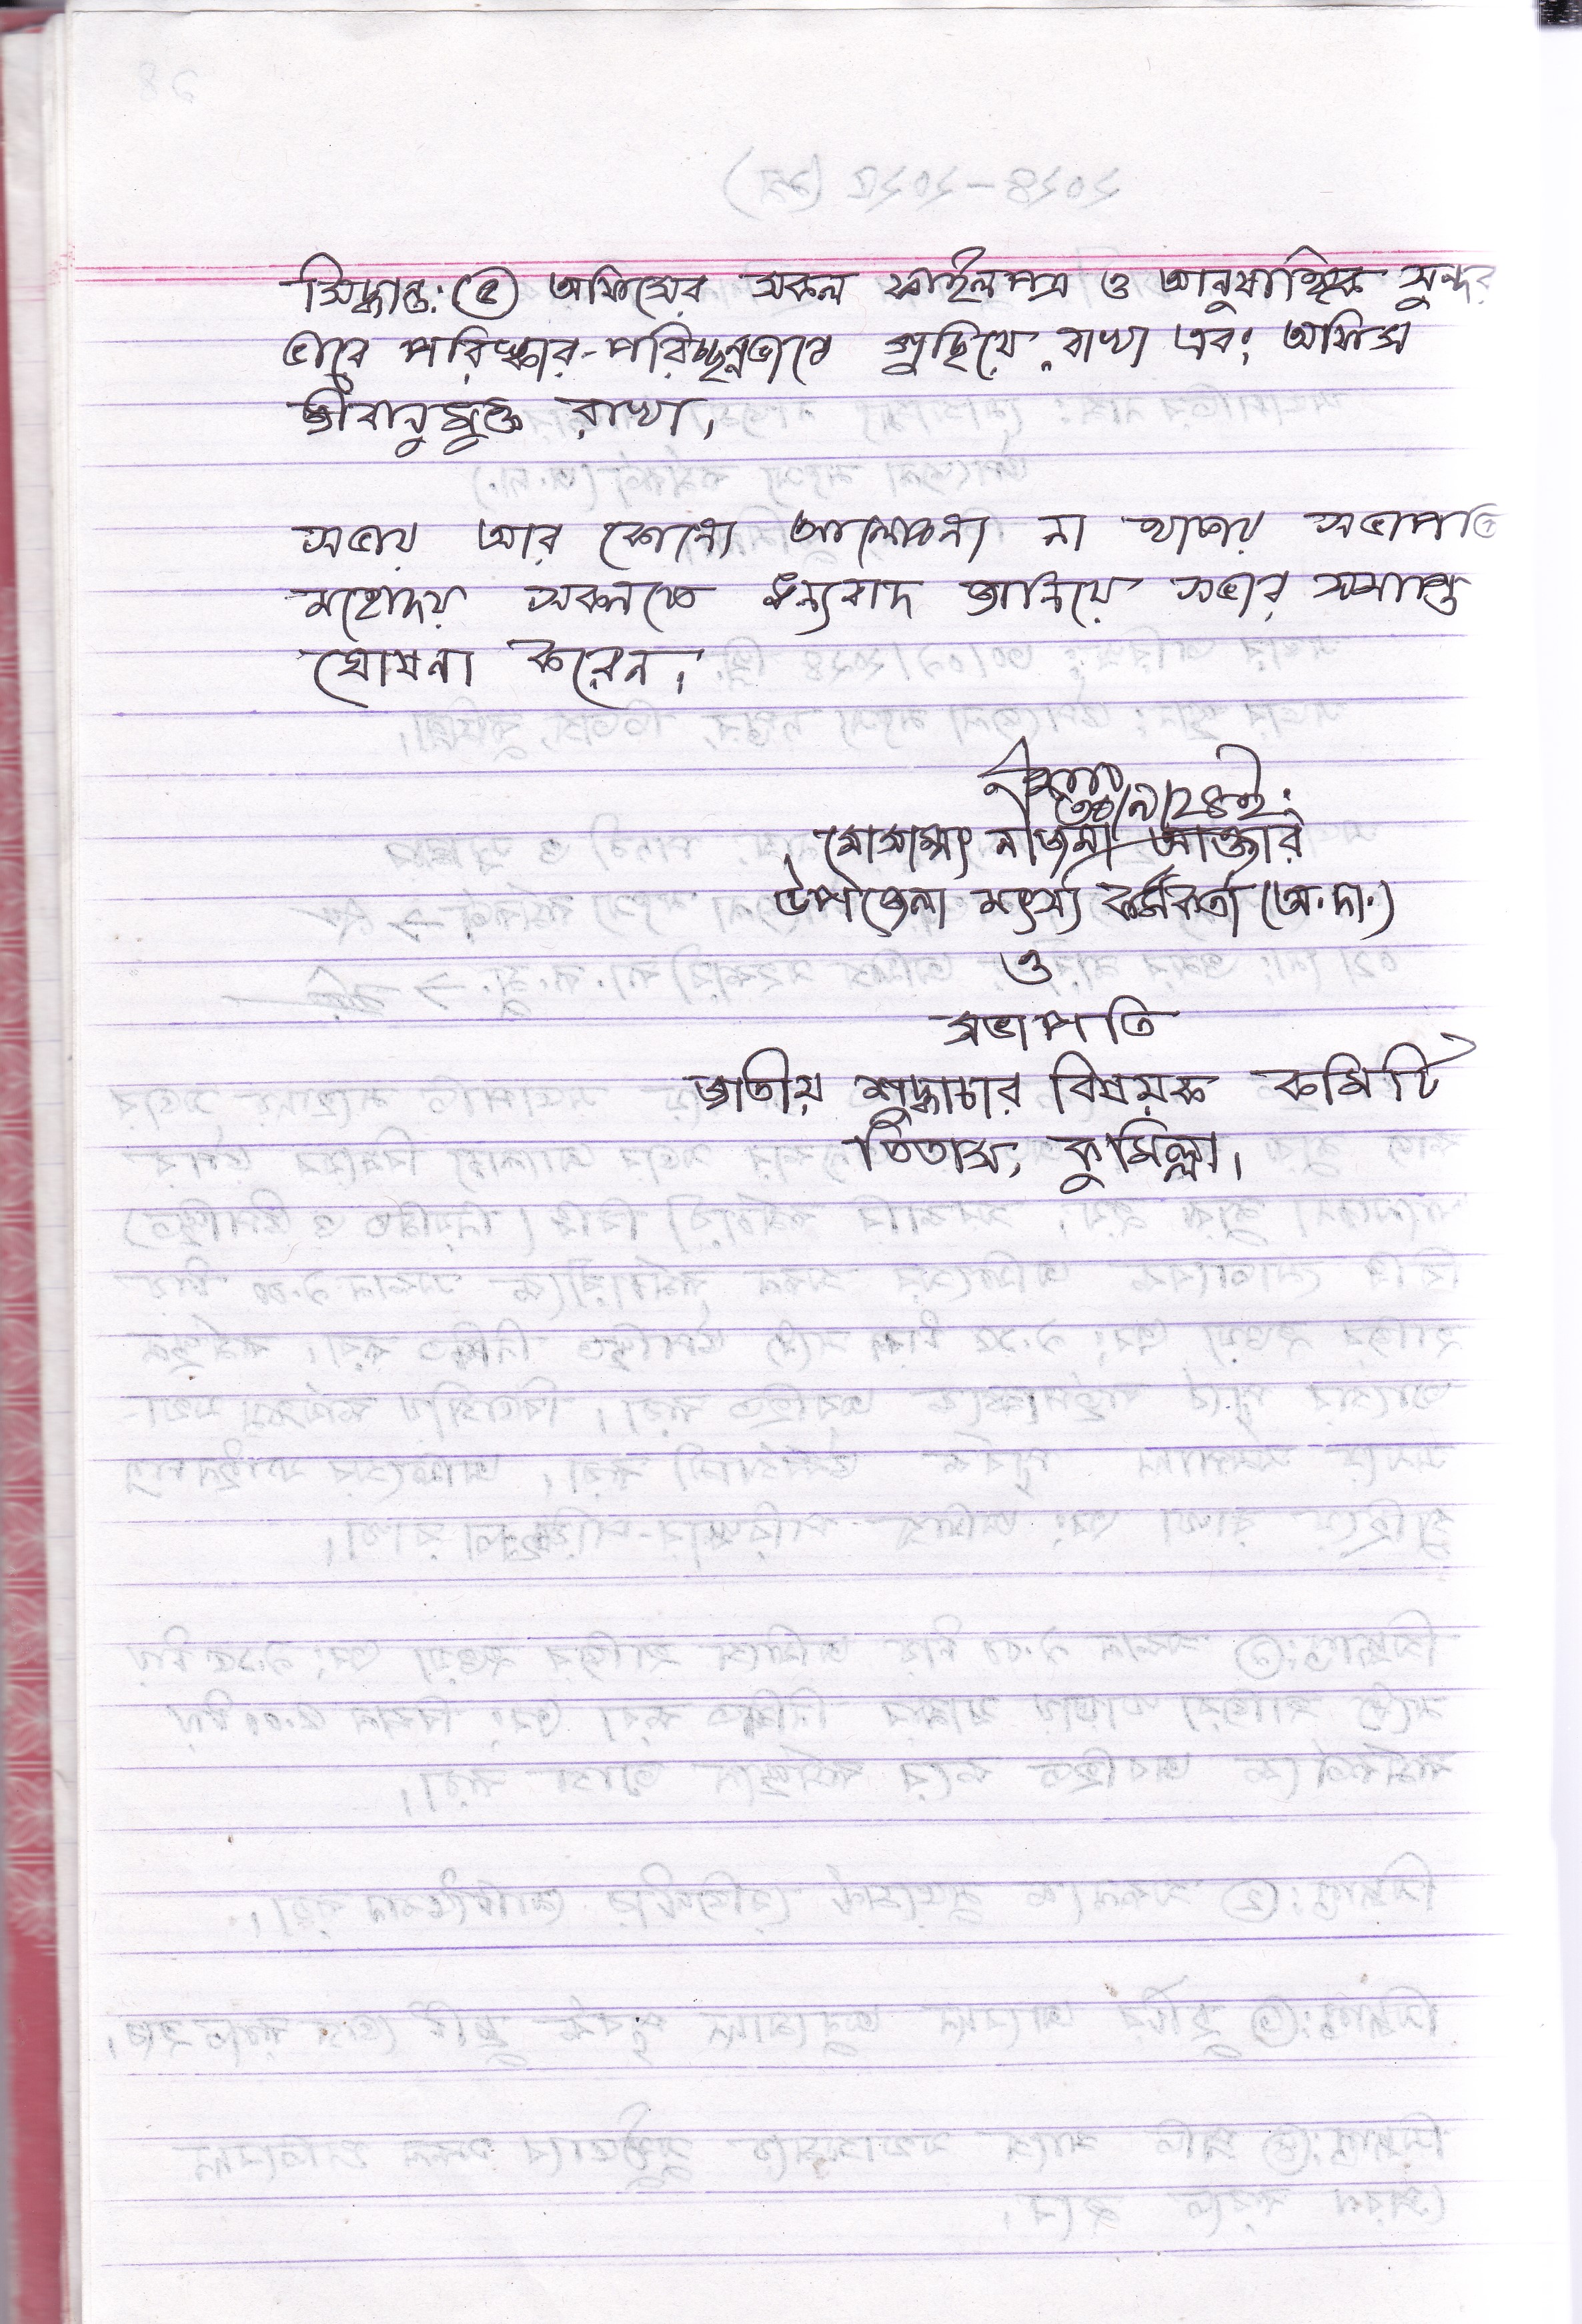 সিদ্ধান্ত: (৫) অফিসের সকল ফাইলপত্র ও আনুষাঙ্গিক সুন্দর
ভাবে পরিষ্কার-পরিচ্ছন্নভাবে গুছিয়ে রাখা এবং অফিস
জীবানুমুক্ত রাখা।
সভায় আর কোনো আলোচনা না থাকায় সভাপতি
মহোদয় সকলকে ধন্যবাদ জানিয়ে সভার সমাপ্তি
ঘোষনা করেন।
৩০/৯/২৪ইং
মোসাম্মৎ নাজমা আক্তার
উপজেলা মৎস্য কর্মকর্তা (অ.দা.)
ও
সভাপতি
জাতীয় শুদ্ধাচার বিষয়ক কমিটি
তিতাস, কুমিল্লা।